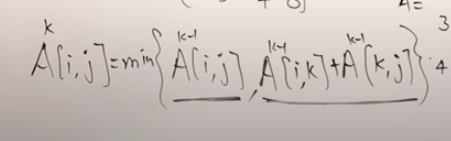 A^k[i,j]=min{A^k-1[i,j], A^k-1[i,k]+A^k-1[k,j]}
A=
3
4